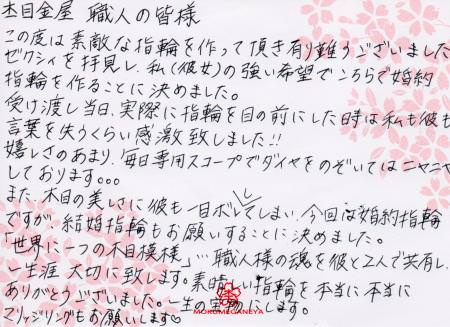 杢目金屋 職人の皆様
この度は素敵な指輪を作って頂き有り難うございました
ゼクシィを拝見し、私(彼女)の強い希望でこちらで婚約
指輪を作ることに決めました。
受け渡し当日、実際に指輪を目の前にした時は私も彼も
言葉を失うくらい感激致しました!!
嬉しさのあまり、毎日専用スコープでダイヤをのぞいてはニヤニヤ
しております。。。
また、木目の美しさに彼も一目ボレしてしまい、今回は婚約指輪
ですが、結婚指輪もお願いすることに決めました。
「世界に一つの木目模様」…職人様の魂を彼と2人で共有し、
一生涯大切に致します。素晴しい指輪を本当に本当に
ありがとうございました。一生の宝物にします。
マリッジリングもお願いします♡
MOKUMEGANEYA